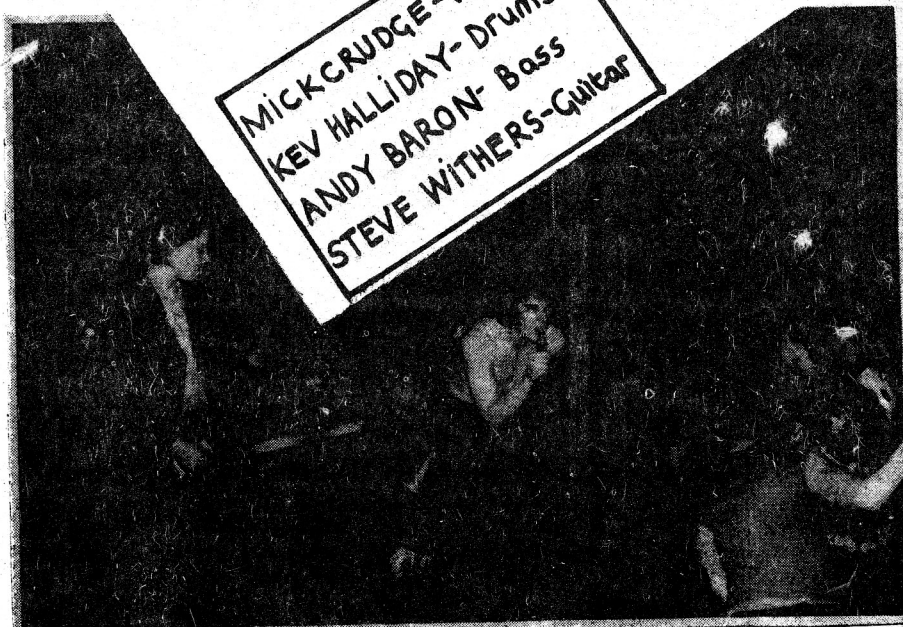 MiCKCRUDGE-
KEV HALLiDAY- Drums
ANDY BARON- Bass
STEVE WiTHERS-Guitar